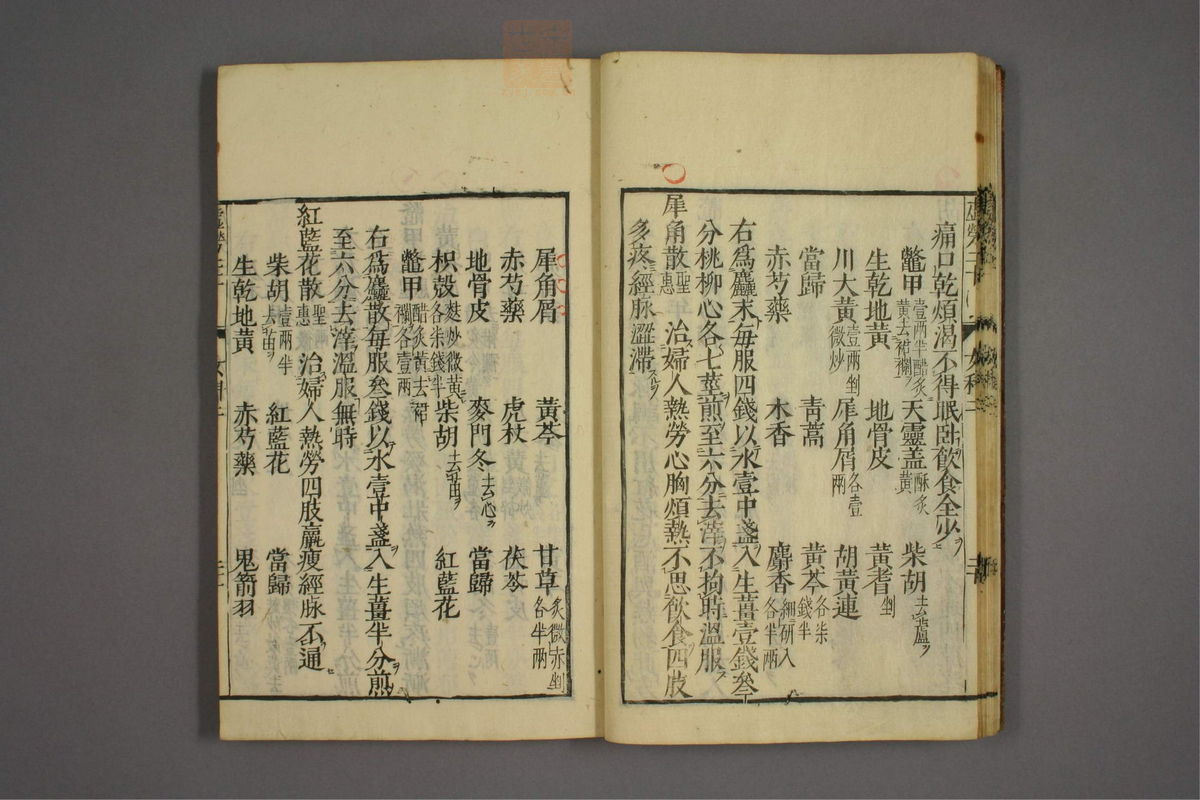 痛口乾煩渴不得眠卧飲食全少
鼈甲壹兩半醋炙黄去裙襴 天靈盖酥炙黄 柴胡去蘆
生乾地黄 地骨皮 黄耆剉
川大黄壹兩剉微炒 犀角屑各壹兩 胡黄連
當歸 青蒿 黄芩各柒錢半
赤芍藥 木香 麝香細研入各半兩
右爲麤末每服四錢以水壹中盞入生薑壹錢叄
分桃柳心各七莖煎至六分去滓不拘時溫服
犀角散聖惠 治婦人熱勞心胸煩熱不思飲食四肢
多疼經脉澀滯
犀角屑 黄芩 甘草炙微赤剉各半兩
赤芍藥 虎杖 茯苓
地骨皮 麥門冬去心 當歸
枳殼麩炒微黄各柒錢半 柴胡去苗 紅藍花
鼈甲醋炙黄去裙襴各壹兩
右爲麤散每服叄錢以水壹中盞入生薑半分煎
至六分去滓溫服無時
紅藍花散聖惠 治婦人熱勞四肢羸瘦經脉不通
柴胡壹兩半去苗 紅藍花 當歸
生乾地黄 赤芍藥 鬼箭羽